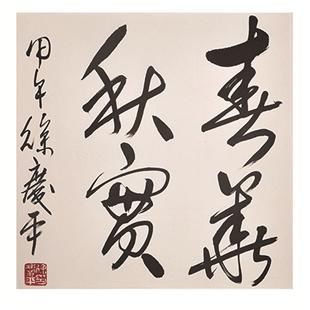 春華
秋實
甲午徐慶平